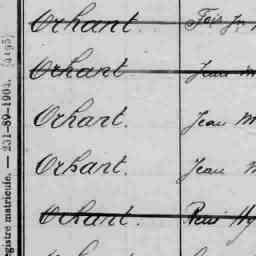 Orhant. Fois Jn
Orhant Jean M
Orhant. Jean M
Orhant. Jean M
Orhant. Hy
egistre matricule. — 231-89-1904. [4195]